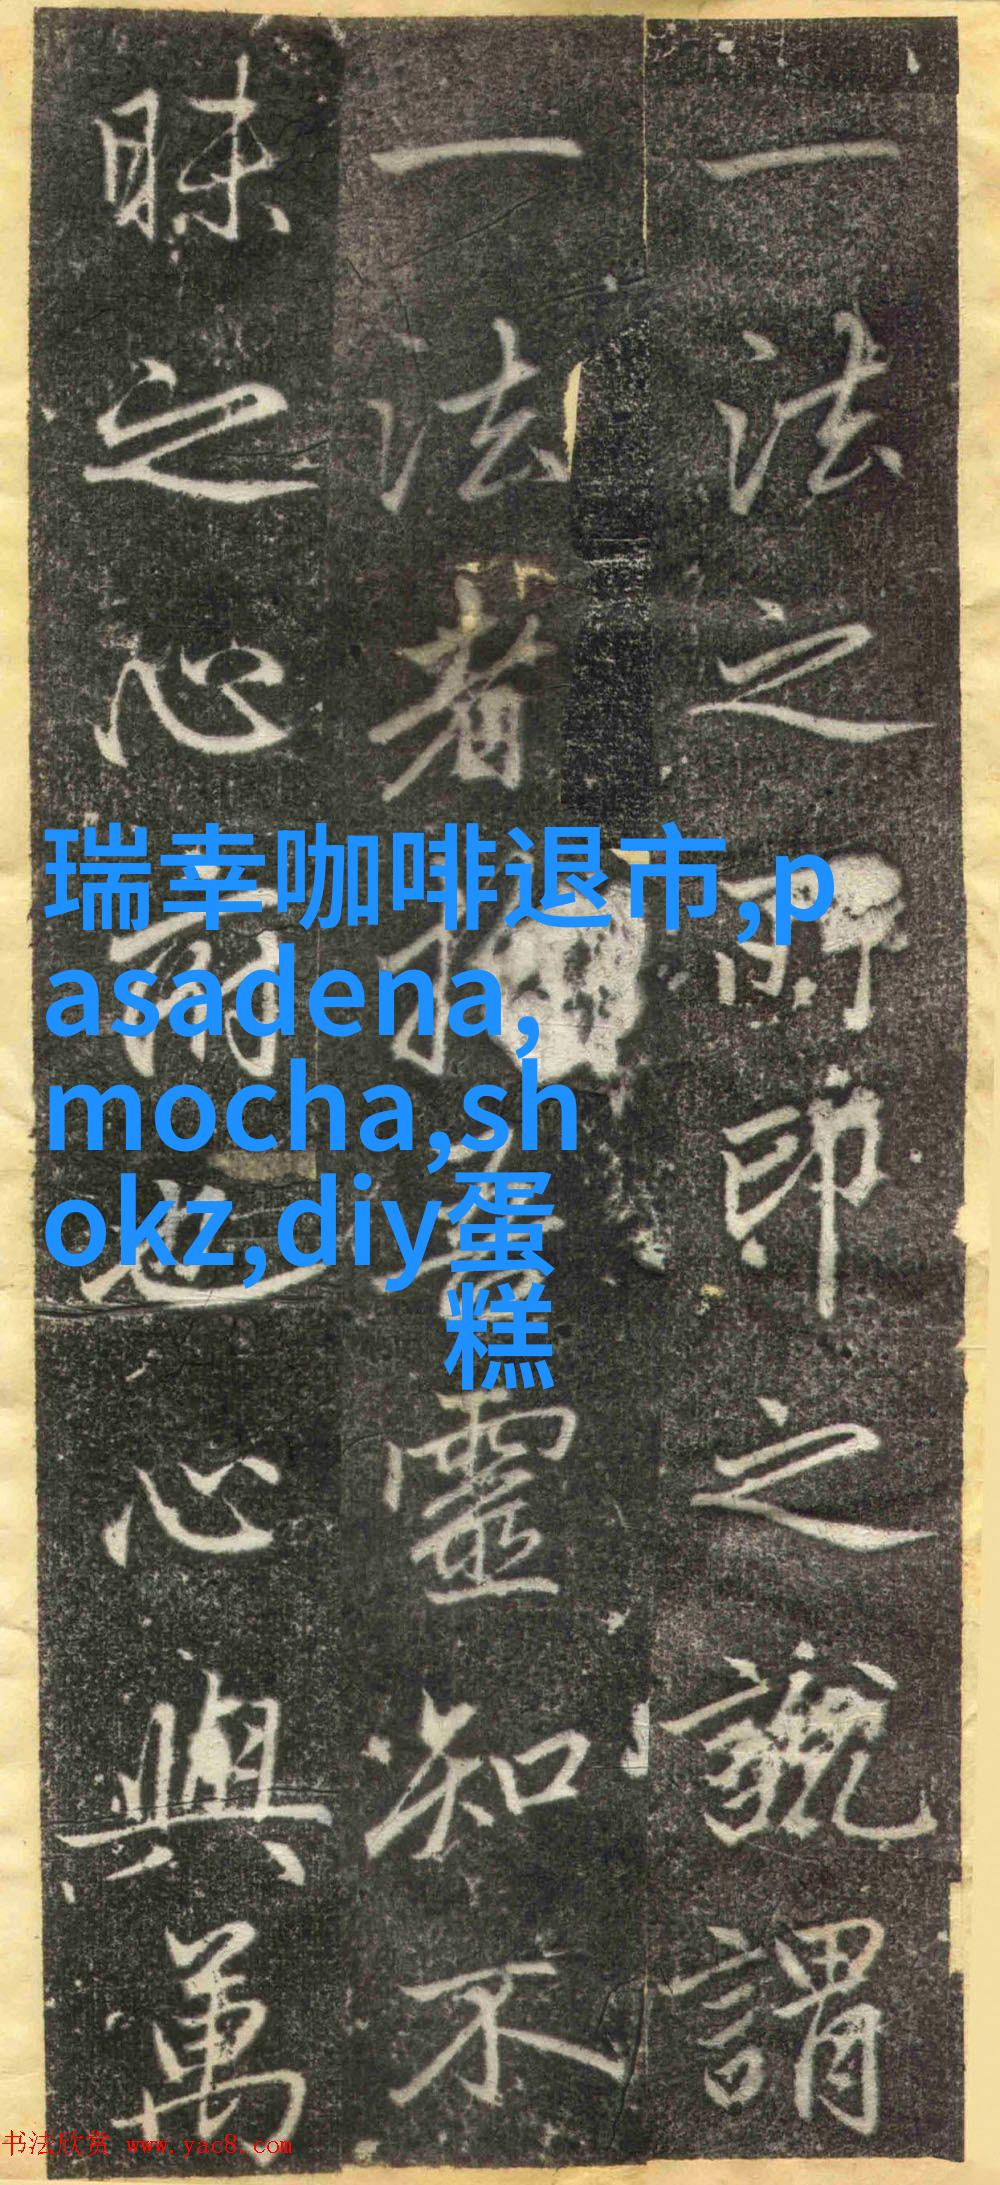 一法之所印之號謂
一法者撝靈知不
昧之心爾也心與萬
瑞幸咖啡退市,p
asadena,
mocha,sh
okz,diy蛋
糕
书法欣赏 www.yac8.com